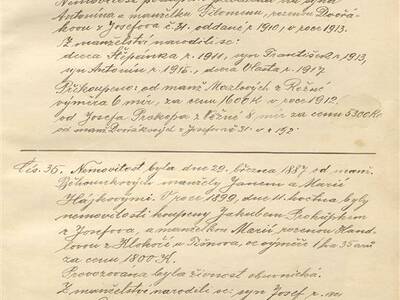 Nemovitost
Antonína a manželku Filomenu, rozenou Dvořá-
kovu z Josefova č. 31. oddané r. 1910 v roce 1913.
Z manželství narodili se:
dcera Štěpánka r. 1911, syn František r. 1913,
syn Antonín r. 1915, dcera Vlasta r. 1917.
Přikoupeno: od manž. z Rožné
výměra 6 mír, za cenu 1600 K v roce 1912.
od Josefa Prokopa z Rožné 8 mír za cenu 5300 Kč
od manž. Dvořákových z Josefova 31. v r. 192
Čís. 36. Nemovitost byla dne 29. března 1887 od manž.
manžely Janem a Marií
Hájkovými. V roce 1899, dne 11. května byly
nemovitosti koupeny Jakubem Prokůpkem
z Josefova, a manželkou Marií, rozenou Hand-
lovou z Klokočí u Turnova, ve výměře 1 ha 35 arů
za cenu 1800 Zl.
Provozována byla živnost obuvnická.
Z manželství narodili se: syn Josef r.